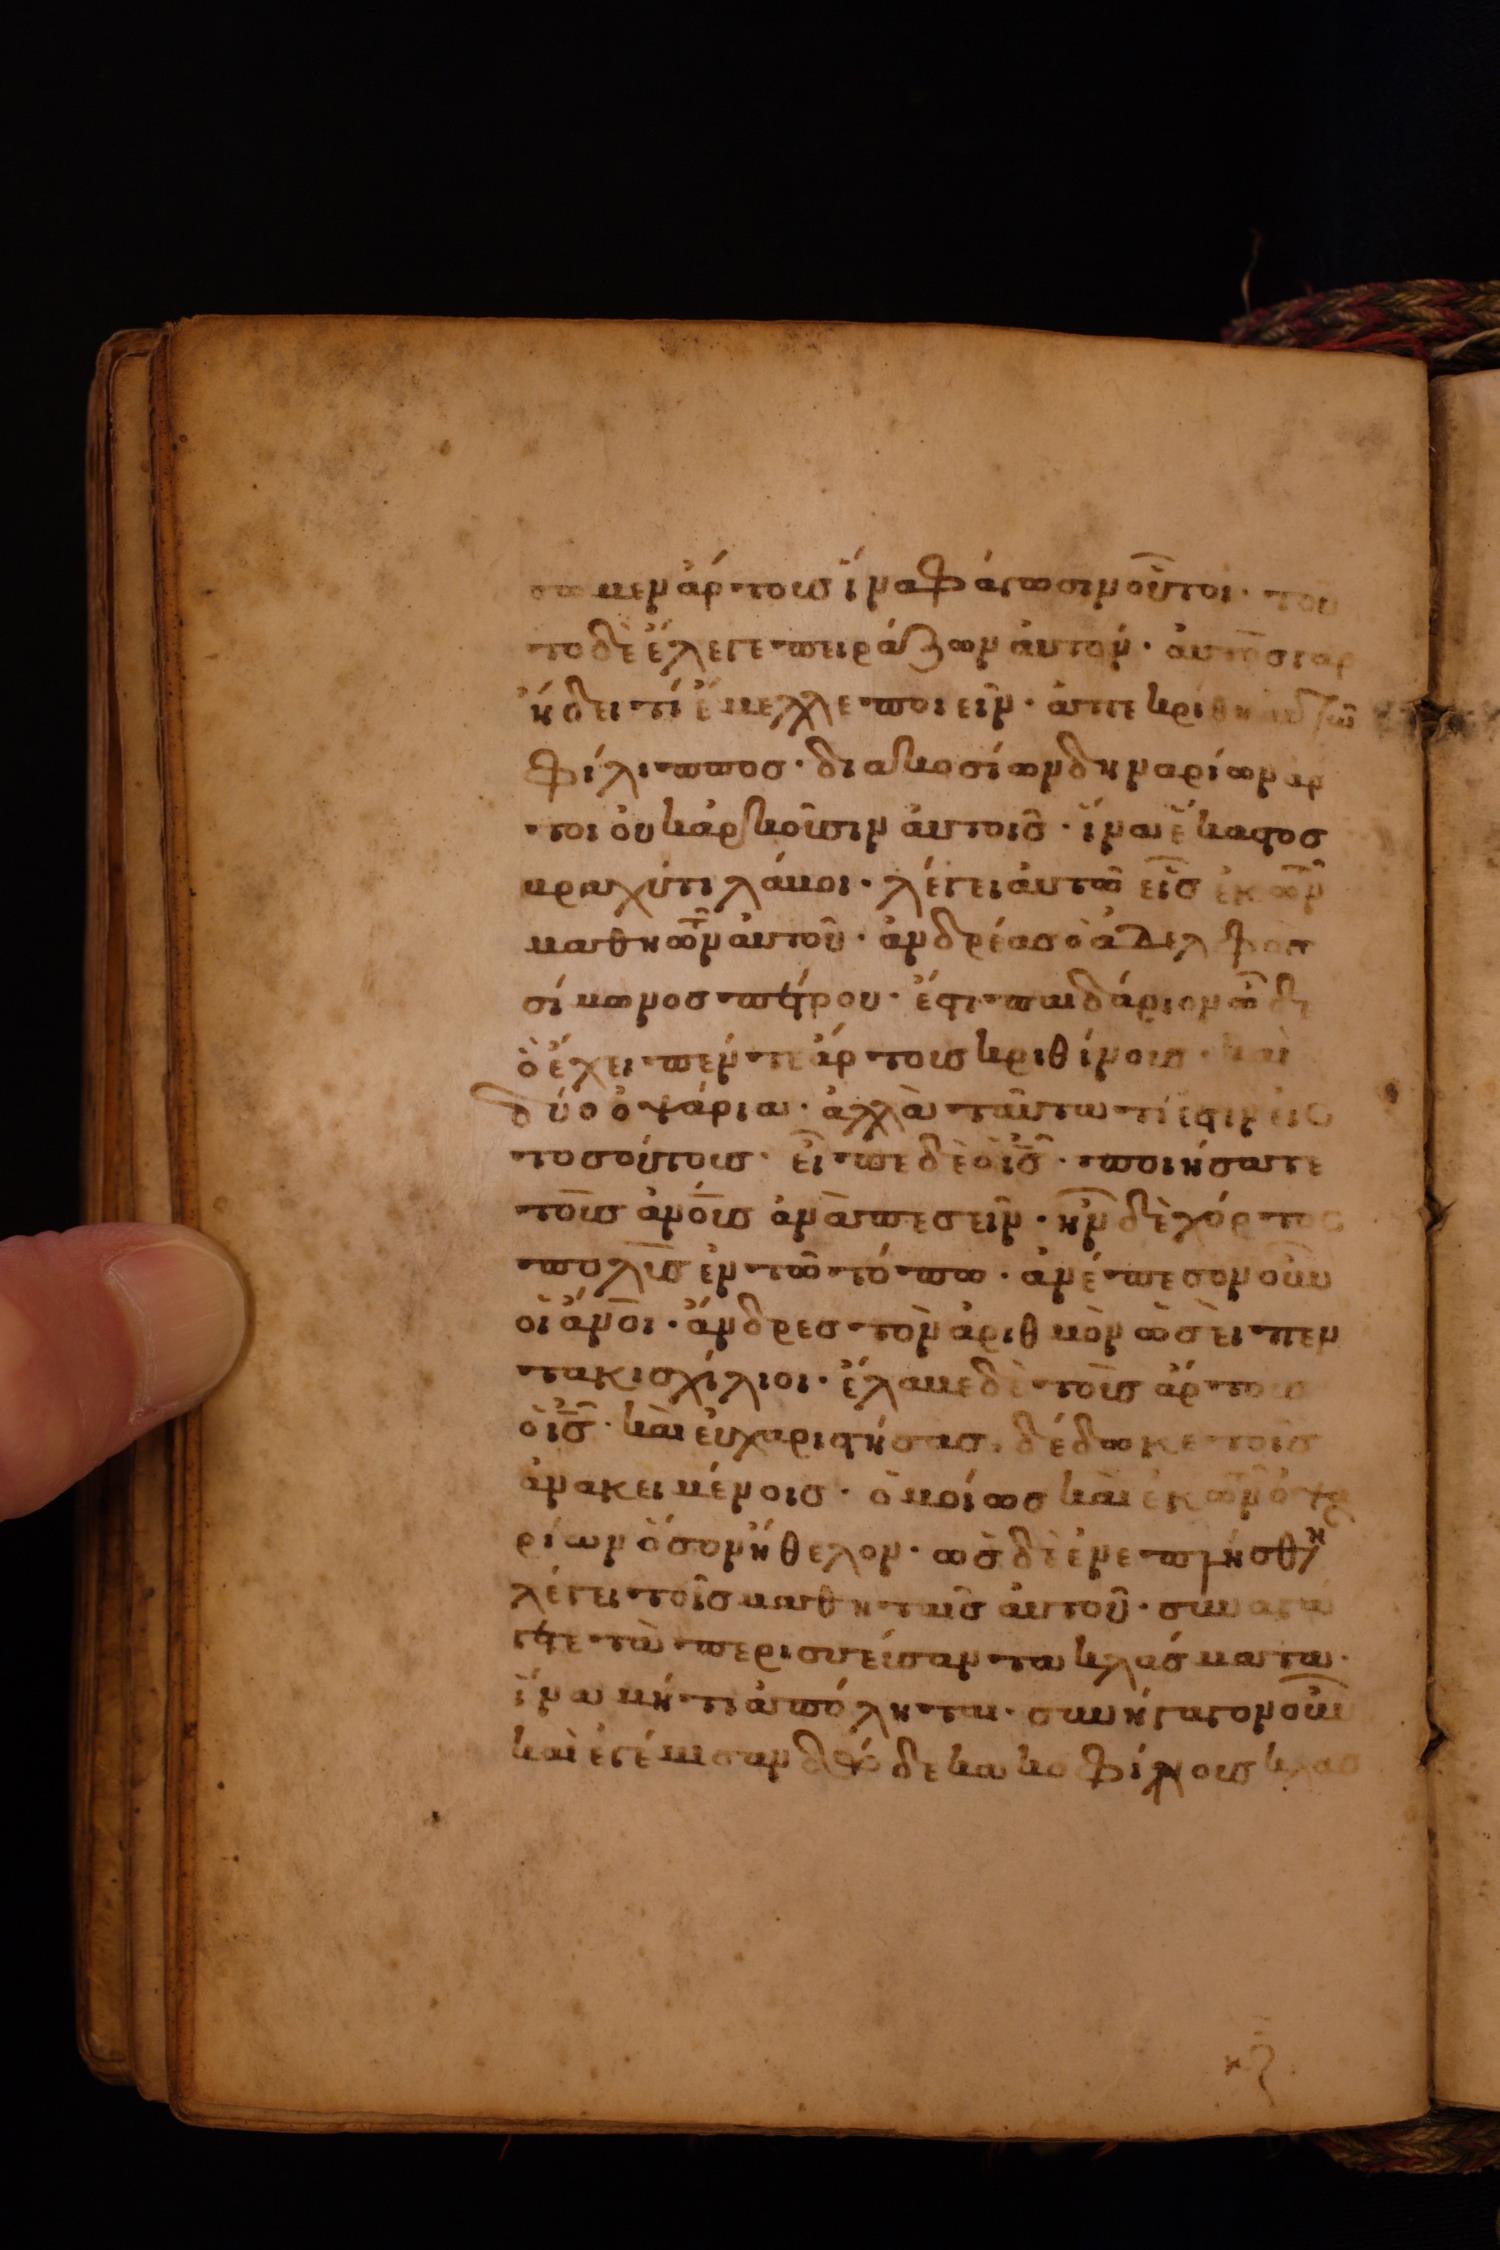 σωμεν ἄρτους ἵνα φάγωσιν οὗτοι· του
το δὲ ἔλεγε πειράζων αὐτόν· αὐτὸς γαρ
ἤδει τί ἔμελλε ποιεῖν· ἀπεκρίθη αὐτῶ
φίλιππος· διακοσίων δηναρίων αρ
τοι οὐκ ἀρκοῦσιν αὐτοῖς· ἵνα ἕκαστος
βραχύ τι λάβοι· λέγει αὐτῶ εἷς ἐκ τῶν
μαθητῶν αὐτοῦ· ἀνδρέας ὁ ἀδελφὸς
σίμωνος πέτρου· ἔστι παιδάριον ὧδε
ὃ ἔχει πέντε ἄρτους κριθίνους· καὶ
δύο ὀψάρια· ἀλλὰ ταῦτα τί ἐστιν εἰς
τοσούτους· εἶπε δὲ ὁ ις· ποιήσατε
τοὺς ἀνους ἀναπεσεῖν· ἦν δὲ χόρτος
πολὺς ἐν τῶ τόπω· ἀνέπεσον οὖν
οἱ ἄνοι· ἄνδρες τὸν ἀριθμὸν ὡσεὶ πεν
τακισχίλιοι· ἔλαβε δὲ τοὺς ἄρτους
ὁ ις· καὶ εὐχαριστήσας, δέδωκε τοῖς
ἀνακειμένοις· ὁμοίως καὶ ἐκ τῶν ὀψα
ρίων ὅσον ἤθελον· ὡς δὲ ἐνεπλήσθη
λέγει τοῖς μαθηταῖς αὐτοῦ· συναγά
γετε τὰ περισσεύσαντα κλάσματα·
ἵνα μή τι ἀπόληται· συνήγαγον οὖν
καὶ ἐγέμισαν δώδεκα κοφίνους κλασ